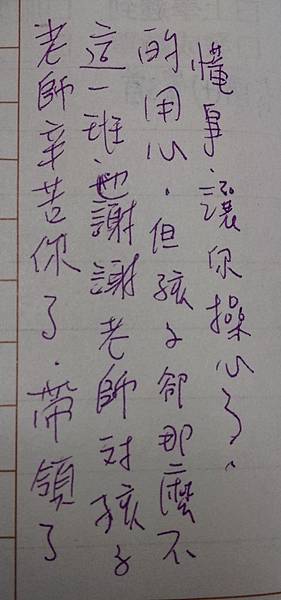 老師辛苦你了．帶領了
這一班．也謝謝老師對孩子
的用心．但孩子卻那麼不
懂事．讓你操心了。